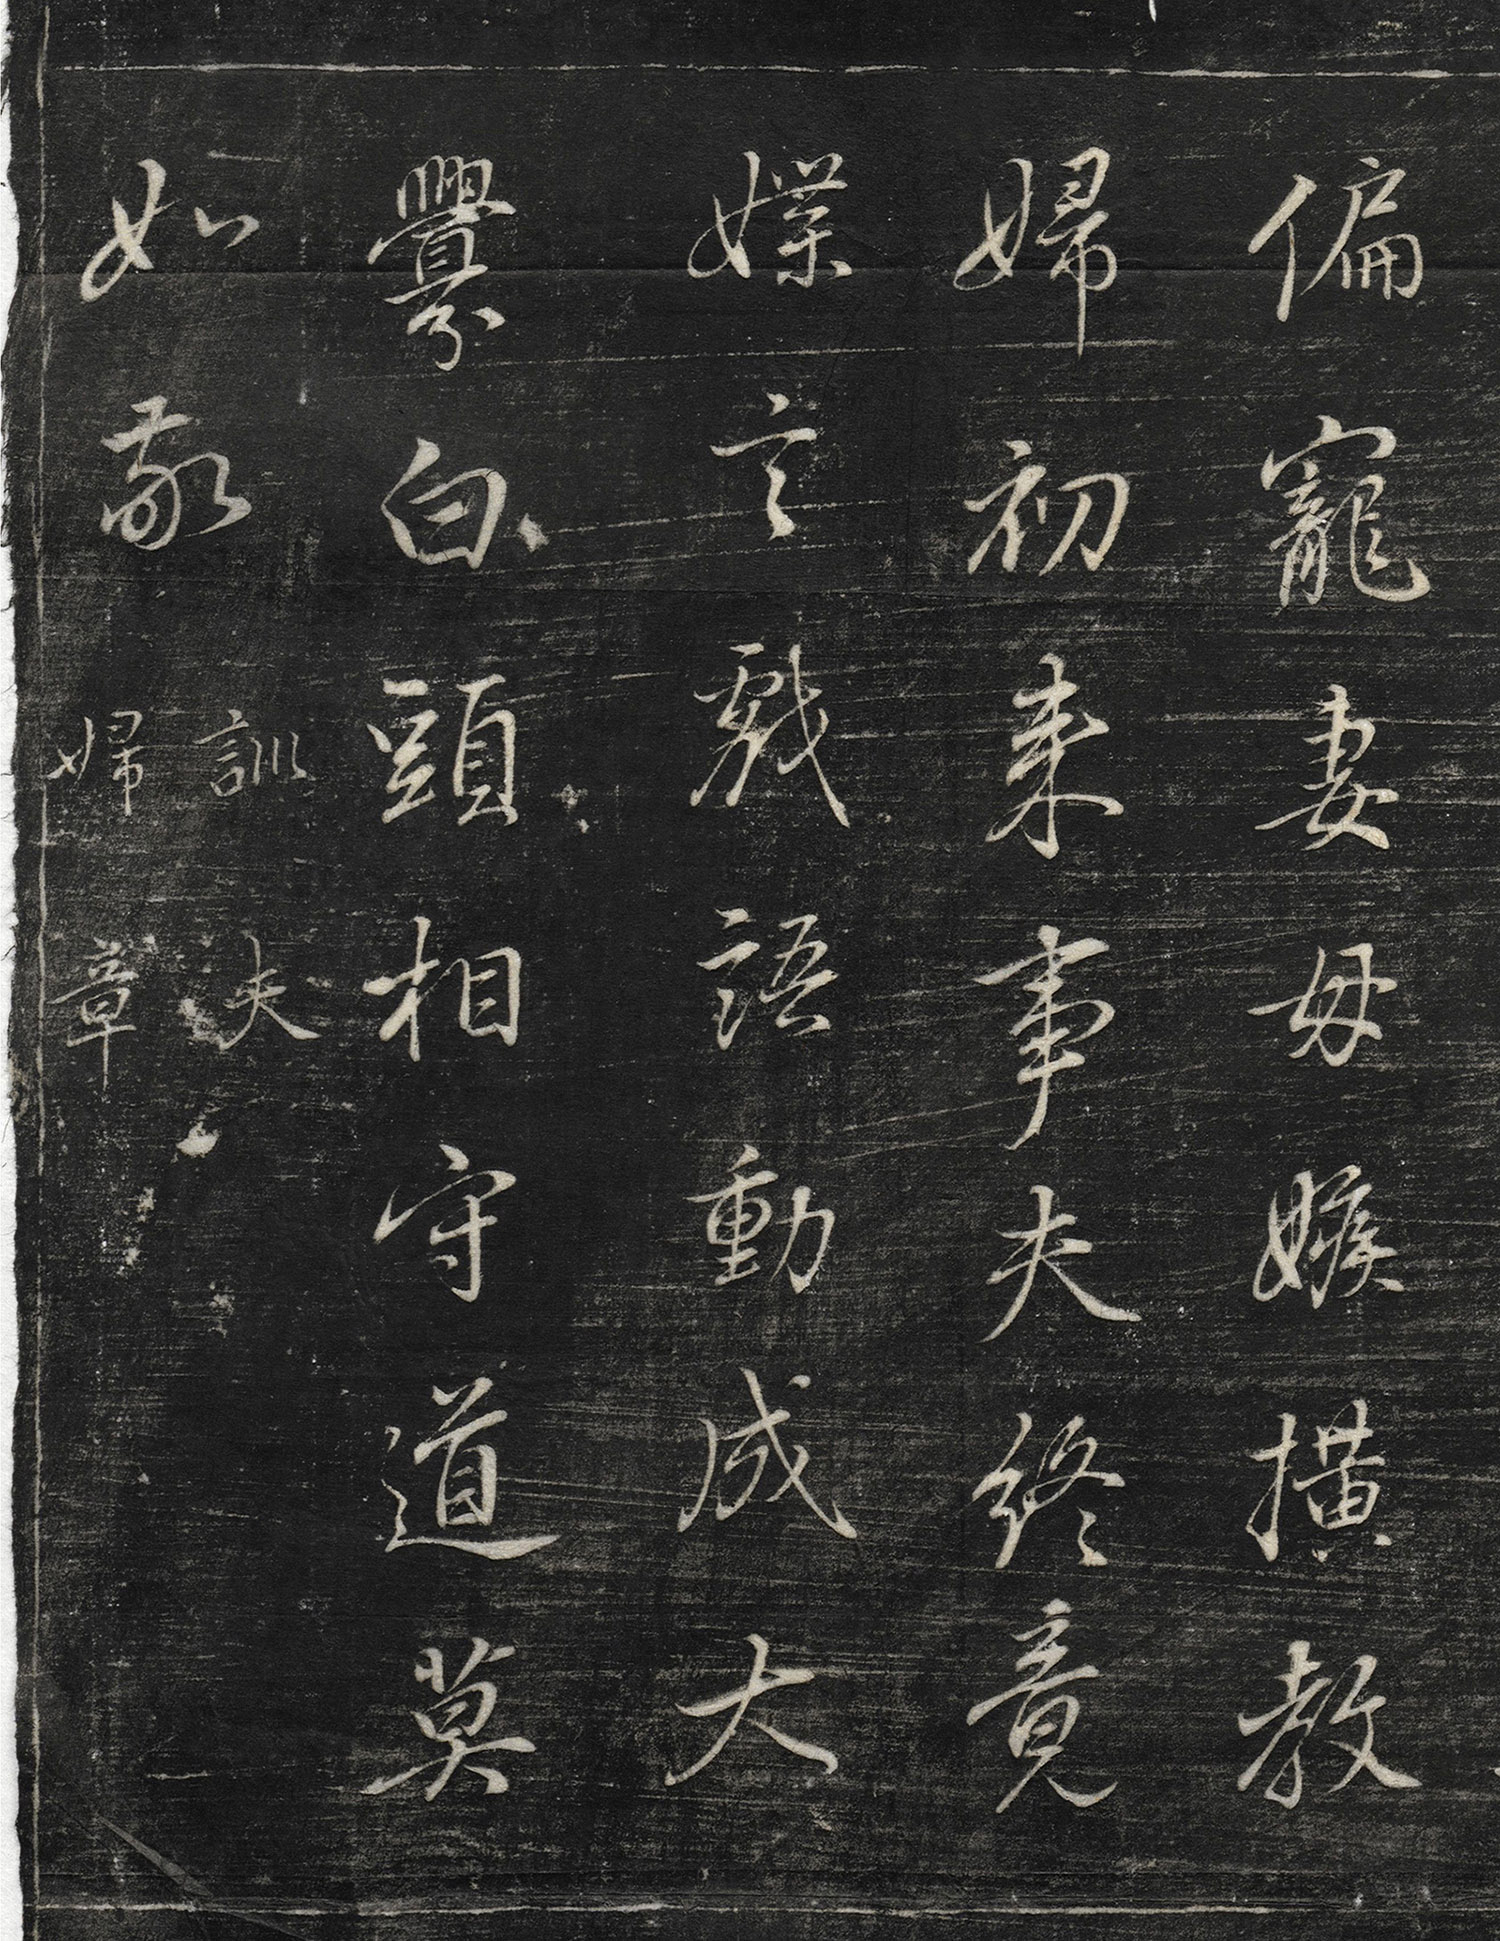 偏寵妻母嫉橫教
婦初来事夫終竟
媟言戲語動成大
釁白頭相守道莫
如敬
訓夫
婦章